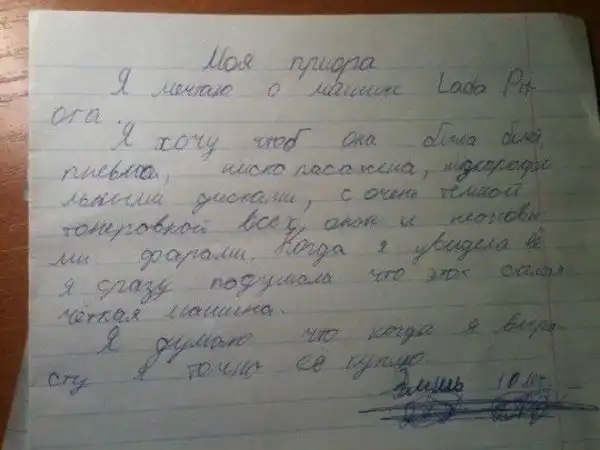 Моя приора
Я мечтаю о машине Lada Pri-
ora.
Я хочу чтоб она была белой,
пневма, ниско пасажена,
льными дисками, с очень тёмной
тонеровкой всех окон и неоновы-
ми фарами. Когда я увидела её
я сразу подумала что это самая
чёткая машина.
Я думаю что когда я выра-
сту я точно её куплю.
10 лет.